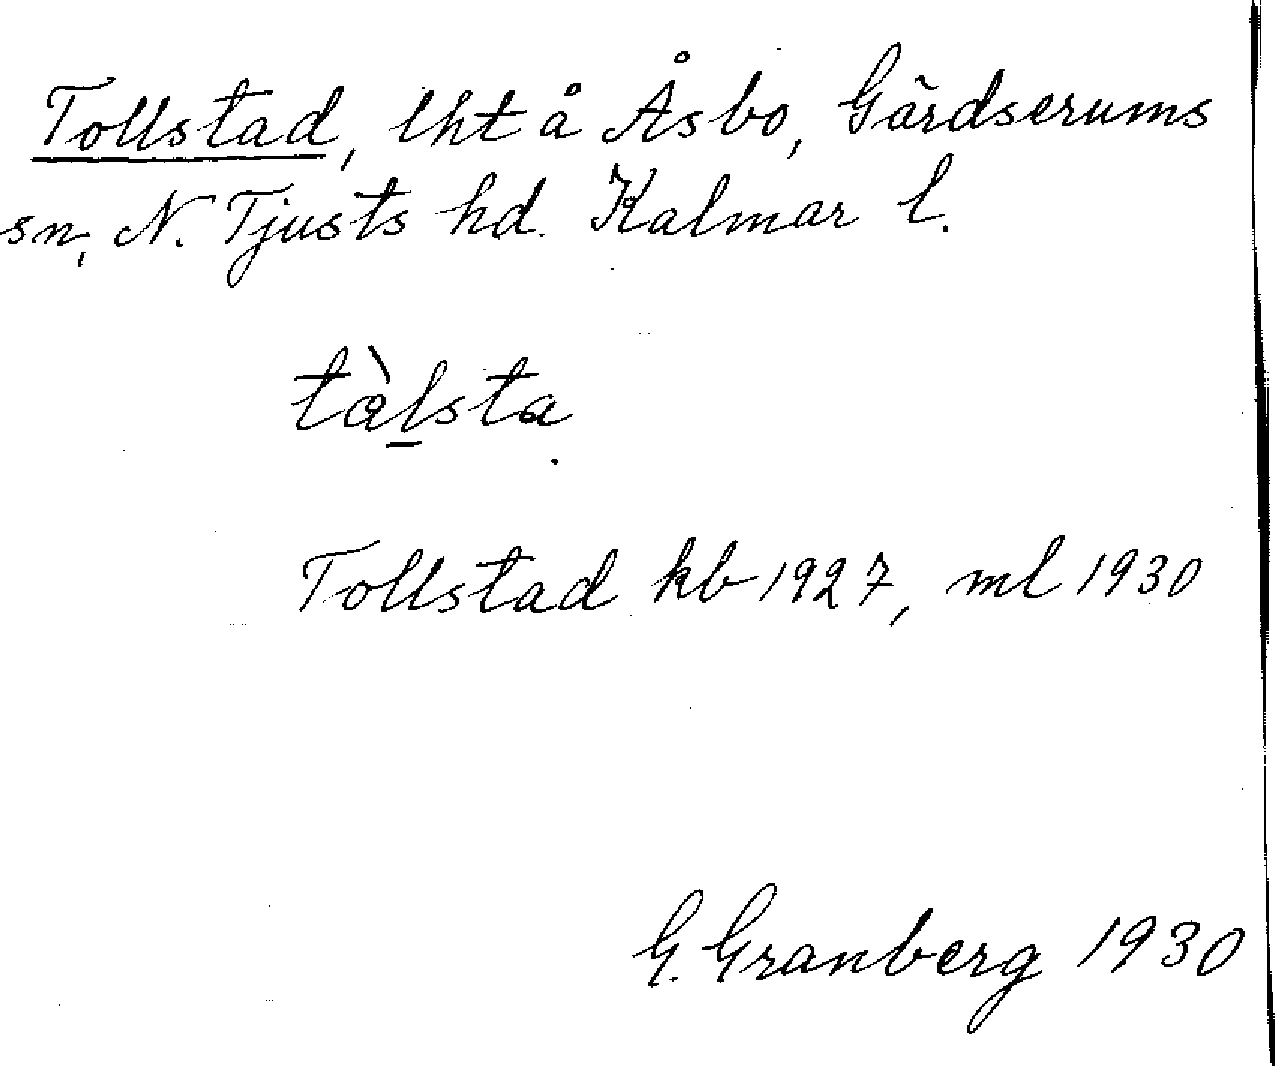 Tollstad, lht å Åsbo, Gärdserums
sn, N. Tjusts hd. Kalmar l.
tàlsta
Tollstad kb 1927, ml 1930
G. Granberg 1930